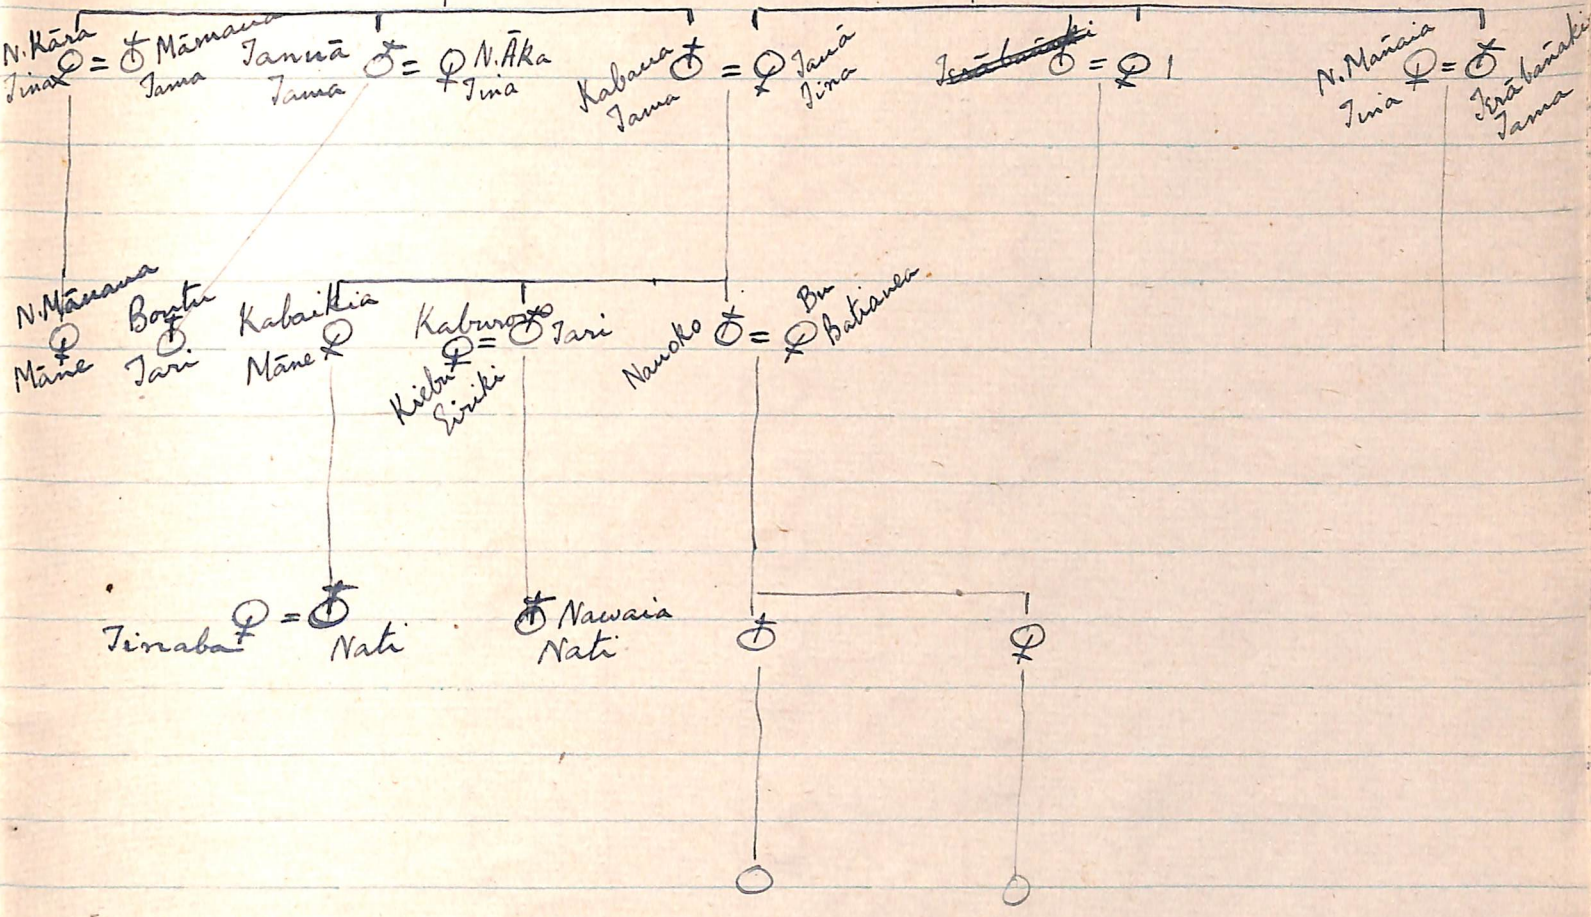 N. Kāra
Tina
Māmaua
Tama
Tannā
Tama
N. Āka
Tina
Kabaua
Tama
Tauā
Tina
N. Mañaia
Tina
Terābañaki
Tama
N. Māuaua
Māne
Bontu
Tari
Kabaikia
Māne
Kaburoro
Tari
Kiebu
Eiriki
Nauoko
Bu
Batianea
Tinaba
Nati
Nawaia
Nati